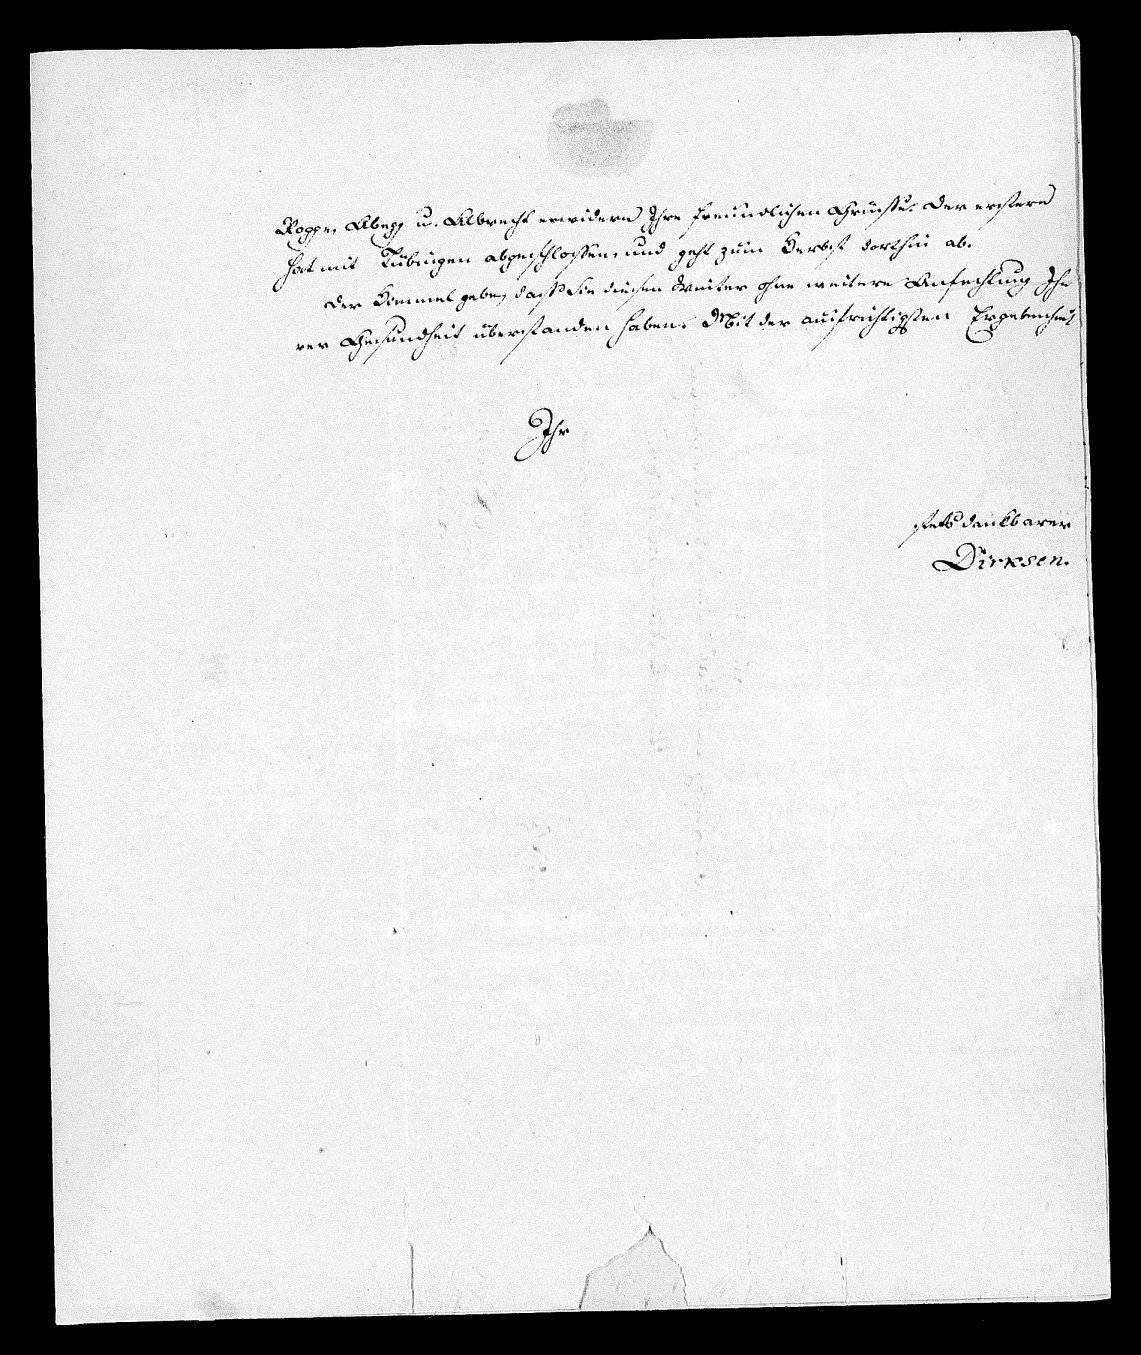 Rogge, Abegg u. Albrecht erwidern Ihre freundlichen Grüsse. Der erstere
hat mit Tübingen abgeschlossen, und geht zum Herbst dorthin ab.
Der Himmel gebe, dass Sie diesen Winter ohne weitere Anfechtung Ih-
rer Gesundheit überstanden haben. Mit der aufrichtigsten Ergebenheit
Ihr
stets dankbarer
Dirksen.